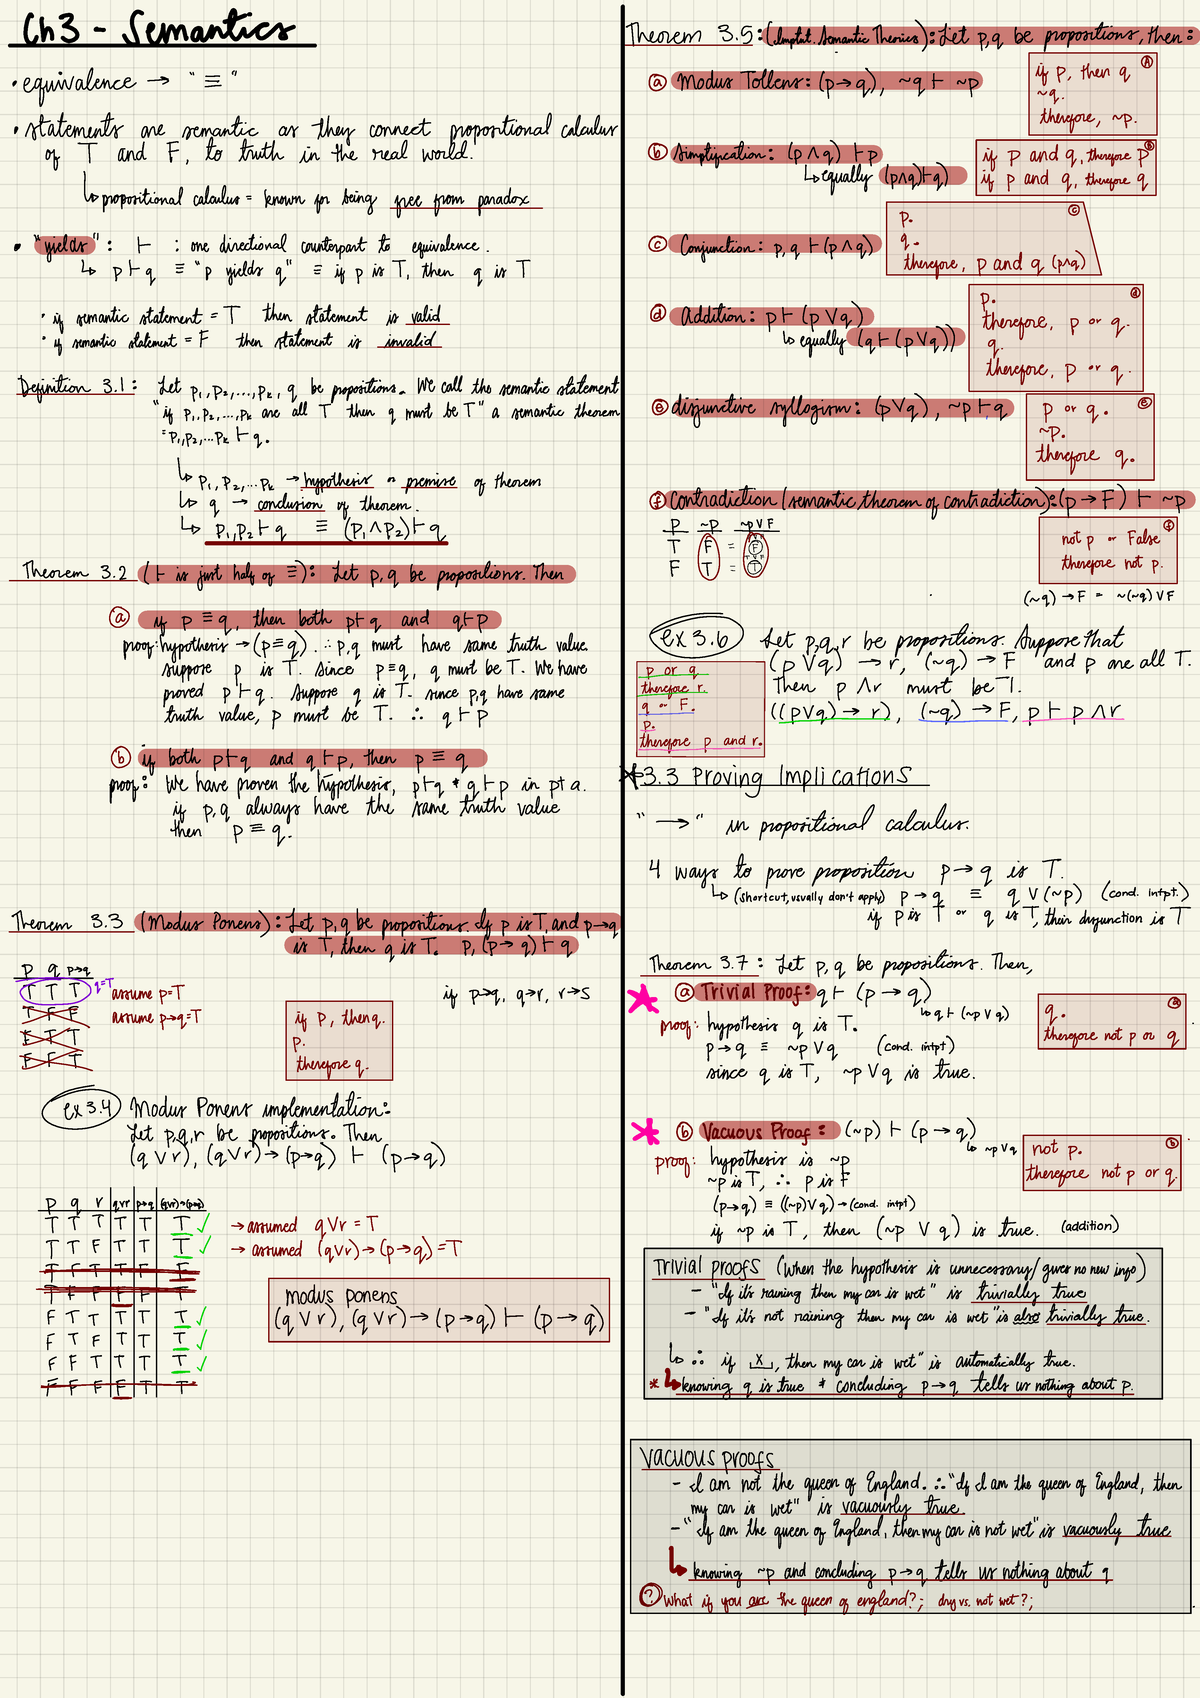 Ch3 - Semantics
• equivalence → "≡"
• statements are semantic as they connect propositional calculus
of T and F, to truth in the real world.
↳ propositional calculus = known for being free from paradox
• "yields": ⊢ : one directional counterpart to equivalence.
↳ p⊢q ≡ "p yields q" ≡ if p is T, then q is T
• if semantic statement = T then statement is valid
• if semantic statement = F then statement is invalid
Definition 3.1: Let p₁,p₂,...,pₖ, q be propositions. We call the semantic statement
"if p₁,p₂,...pₖ are all T then q must be T" a semantic theorem
=p₁,p₂,...pₖ ⊢ q.
↳ p₁, p₂,...pₖ → hypothesis or premise of theorem
↳ q → conclusion of theorem.
↳ p₁,p₂ ⊢ q ≡ (p₁∧p₂)⊢q
Theorem 3.2 (⊢ is just half of ≡): Let p,q be propositions. Then
ⓐ if p≡q, then both p⊢q and q⊢p
proof: hypothesis → (p≡q) ∴ p,q must have same truth value.
suppose p is T. since p≡q, q must be T. We have
proved p⊢q. suppose q is T. since p,q have same
truth value, p must be T. ∴ q⊢p
ⓑ if both p⊢q and q⊢p, then p≡q
proof: We have proven the hypothesis, p⊢q & q⊢p in pt a.
if p,q always have the same truth value
then p≡q.
Theorem 3.3 (Modus Ponens): Let p,q be propositions. If p is T, and p→q
is T, then q is T. p, (p→q)⊢q
p q p→q
T T T q=T
assume p=T
T F F assume p→q=T
F T T
F F T
if p→q, q→r, r→s
if p, then q.
p.
therefore q.
ex 3.4 Modus Ponens implementation:
Let p,q,r be propositions. Then
(q∨r), (q∨r)→(p→q) ⊢ (p→q)
p q r q∨r p→q (q∨r)→(p→q)
T T T T T T ✓ → assumed q∨r = T
T T F T T T ✓ → assumed (q∨r)→(p→q)=T
T F T T F F
T F F F F T
F T T T T T ✓
F T F T T T ✓
F F T T T T ✓
F F F F T T
modus ponens
(q∨r), (q∨r)→(p→q) ⊢ (p→q)
Theorem 3.5: (Imptnt. Semantic Theorics): Let p,q be propositions, then:
ⓐ Modus Tollens: (p→q), ~q ⊢ ~p
if p, then q ⓐ
~q.
therefore, ~p.
ⓑ Simplification: (p∧q)⊢p
↳ equally (p∧q)⊢q)
if p and q, therefore p ⓑ
if p and q, therefore q
ⓒ Conjunction: p,q ⊢(p∧q)
p. ⓒ
q.
therefore, p and q (p∧q)
ⓓ Addition: p⊢(p∨q)
↳ equally (q⊢(p∨q))
p. ⓓ
therefore, p or q.
q.
therefore, p or q.
ⓔ disjunctive syllogism: (p∨q), ~p⊢q
p or q. ⓔ
~p.
therefore q.
ⓕ contradiction (semantic theorem of contradiction): (p→F) ⊢ ~p
p ~p ~p∨F
T F = F
F T = T
not p or False ⓕ
therefore not p.
(~q)→F = ~(~q)∨F
ex 3.6 Let p,q,r be propositions. Suppose that
(p∨q) →r, (~q)→F and p are all T.
Then p∧r must be T.
((p∨q)→r), (~q)→F, p⊢p∧r
p or q
therefore r.
q or F.
p.
therefore p and r.
*3.3 Proving Implications
"→" in propositional calculus.
4 ways to prove proposition p→q is T.
↳ (shortcut, usually don't apply) p→q ≡ q∨(~p) (cond. intpt.)
if p is T or q is T, their disjunction is T
Theorem 3.7: Let p,q be propositions. Then,
ⓐ Trivial Proof: q⊢(p→q)
↳ q⊢(~p∨q)
proof: hypothesis q is T.
p→q ≡ ~p∨q (cond. intpt)
since q is T, ~p∨q is true.
q. ⓐ
therefore not p or q
ⓑ Vacuous Proof: (~p) ⊢ (p→q)
↳ ~p∨q
proof: hypothesis is ~p
~p is T, ∴ p is F
(p→q) ≡ ((~p)∨q) → (cond. intpt)
if ~p is T, then (~p ∨ q) is true. (addition)
not p. ⓑ
therefore not p or q.
Trivial proofs (When the hypothesis is unnecessary/gives no new info)
- "If it's raining then my car is wet" is trivially true
- "If it's not raining then my car is wet" is also trivially true.
↳ ∴ if x, then my car is wet" is automatically true.
* ↳ knowing q is true & concluding p→q tells us nothing about p.
Vacuous proofs
- I am not the queen of England. ∴ "If I am the queen of England, then
my car is wet" is vacuously true.
- "If am the queen of England, then my car is not wet" is vacuously true
↳ knowing ~p and concluding p→q tells us nothing about q
? What if you are the queen of england?; dry vs. not wet?;